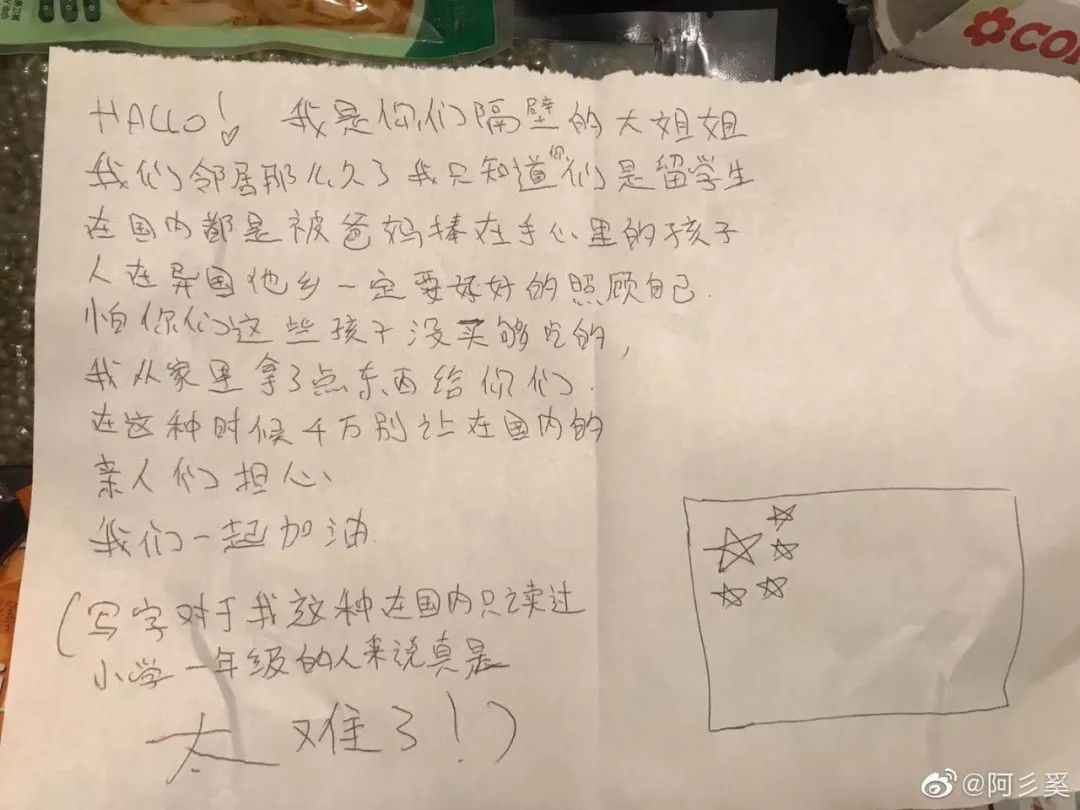 HALLO! 我是你们隔壁的大姐姐
我们邻居那么久了我只知道你们是留学生
在国内都是被爸妈捧在手心里的孩子
人在异国他乡一定要好好的照顾自己.
怕你们这些孩子没买够吃的,
我从家里拿了点东西给你们.
在这种时候千万别让在国内的
亲人们担心
我们一起加油.
(写字对于我这种在国内只读过
小学一年级的人来说真是
太难了!)
@阿彡奚